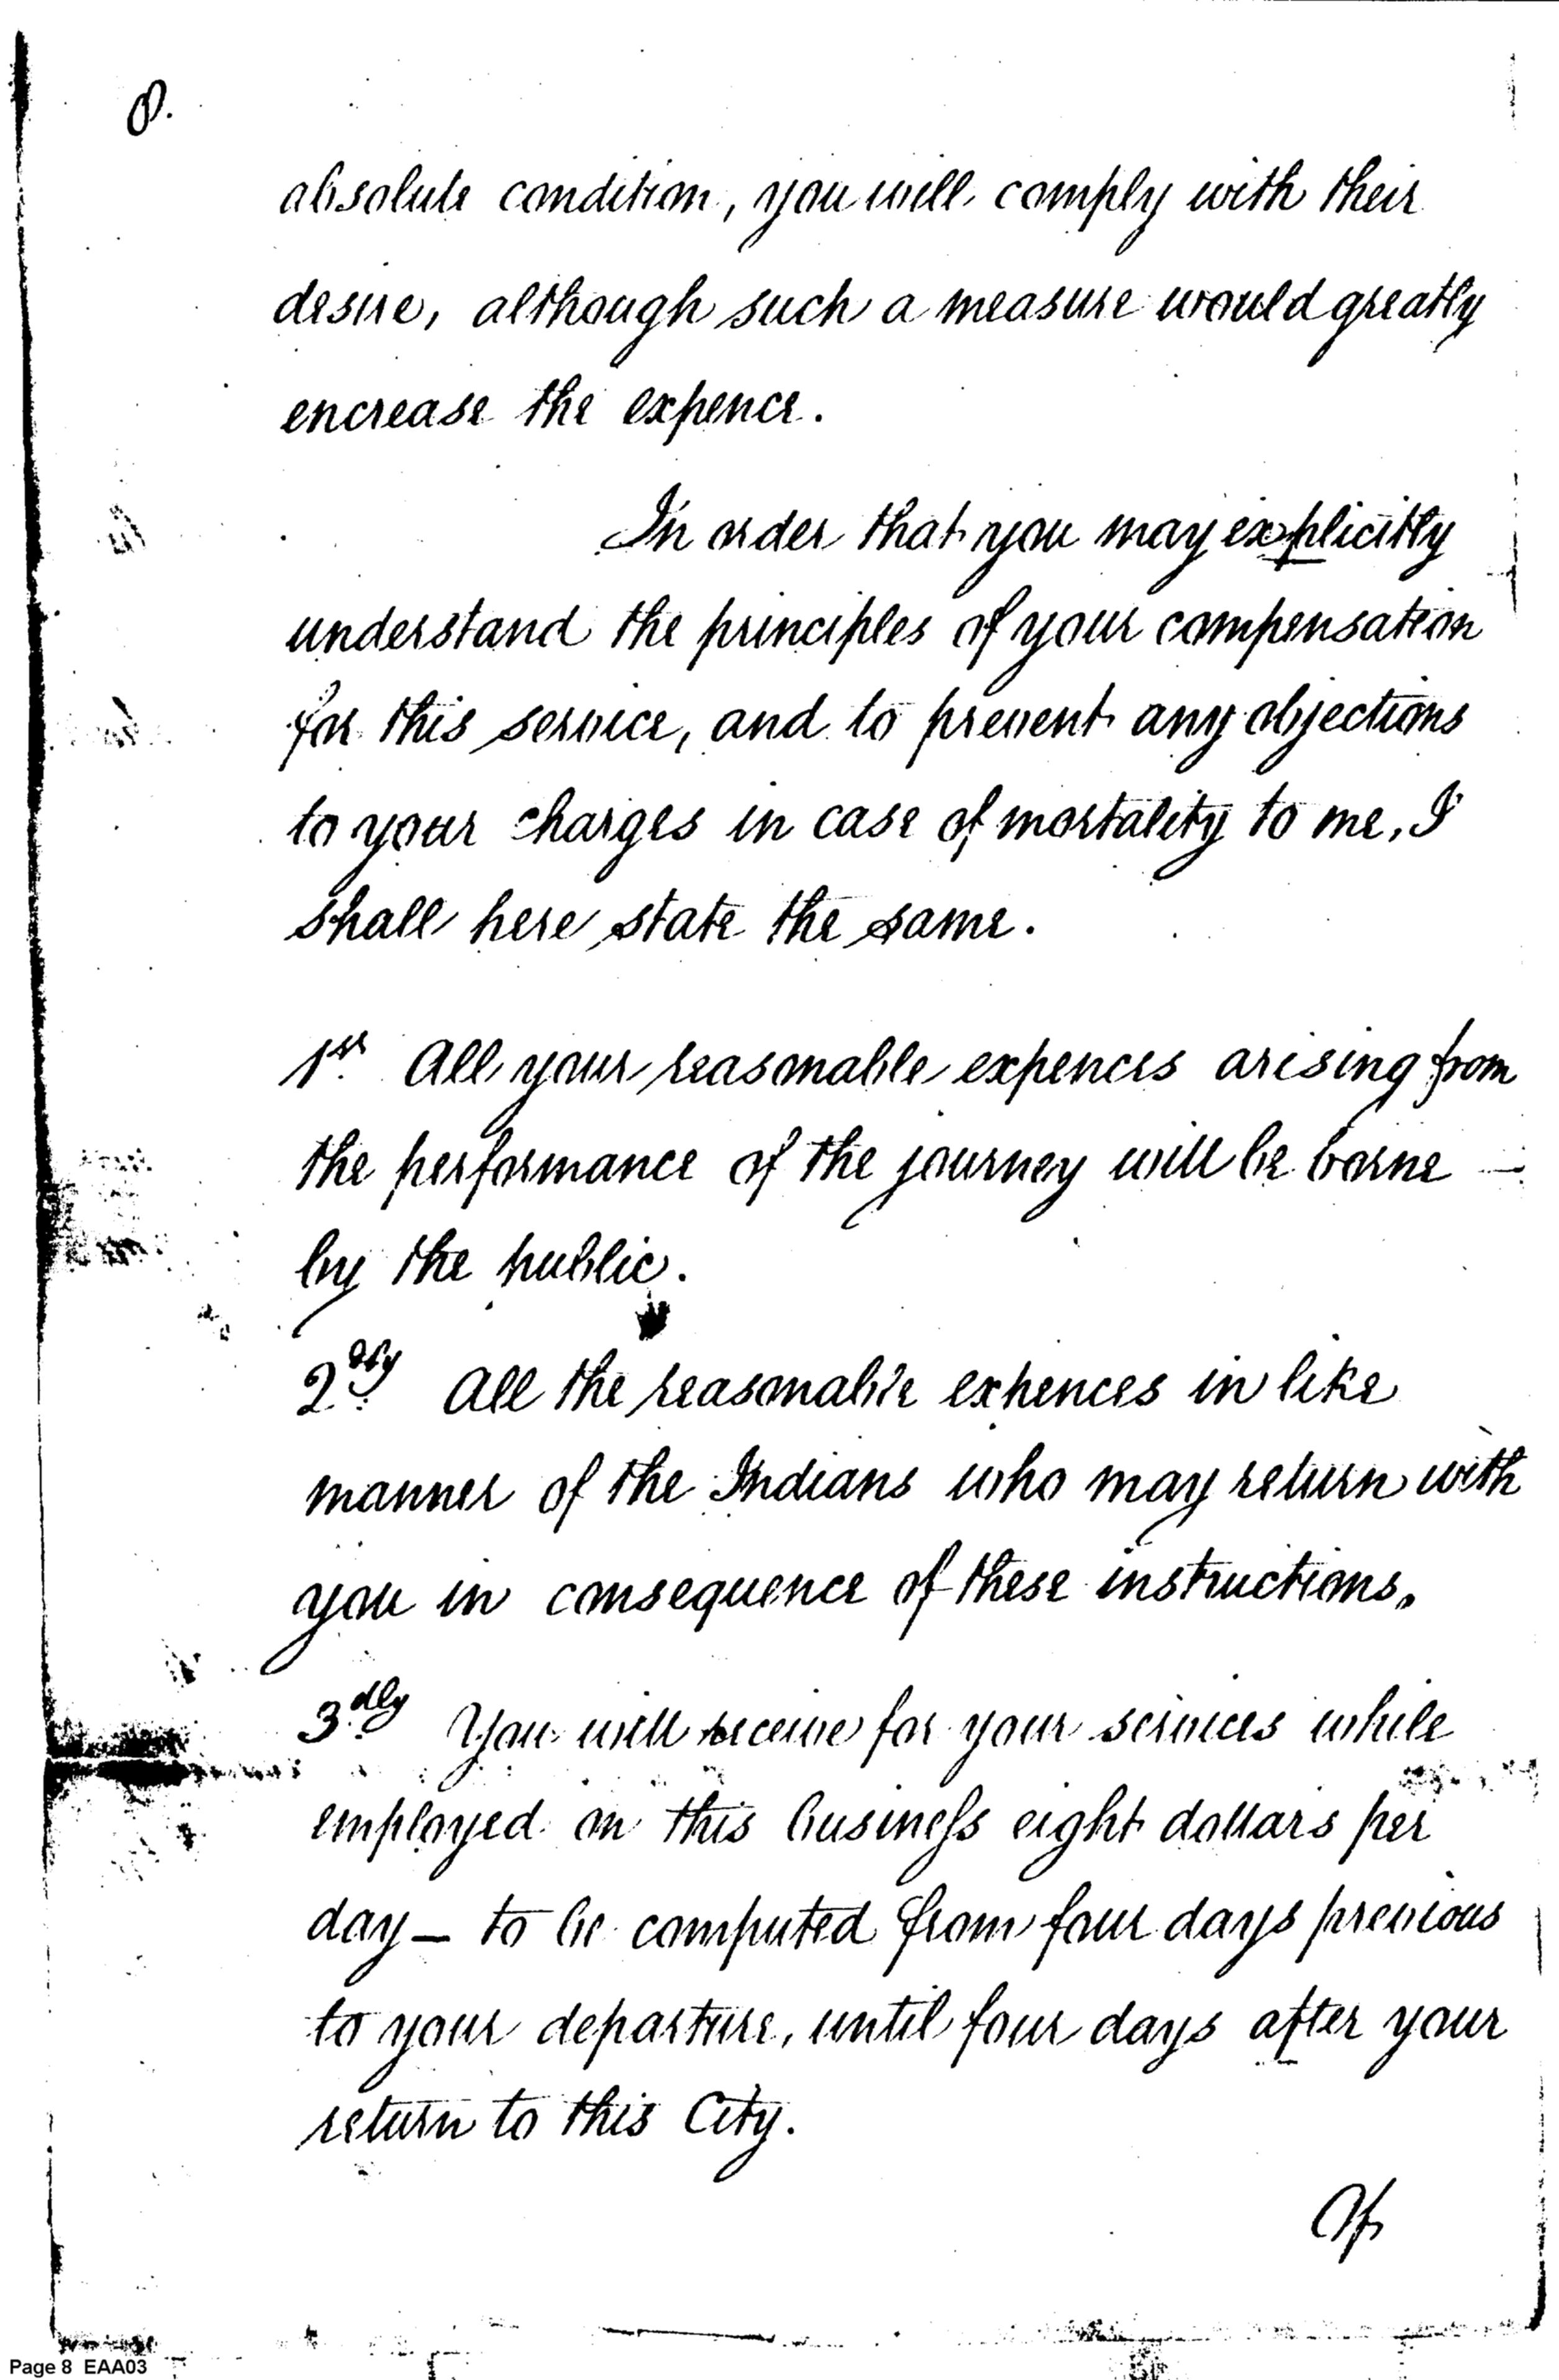 8.
absolute condition, you will comply with their
desire, although such a measure would greatly
encrease the expence.
In order that you may explicitly
understand the principles of your compensation
for this service, and to prevent any objections
to your charges in case of mortality to me, I
shall here state the same.
1st. All your reasonable expences arising from
the performance of the journey will be borne
by the public.
2dly. All the reasonable expences in like
manner of the Indians who may return with
you in consequence of these instructions.
3dly. You will receive for your services while
employed on this business eight dollars per
day — to be computed from four days previous
to your departure, until four days after your
return to this City.
Of
Page 8 EAA03